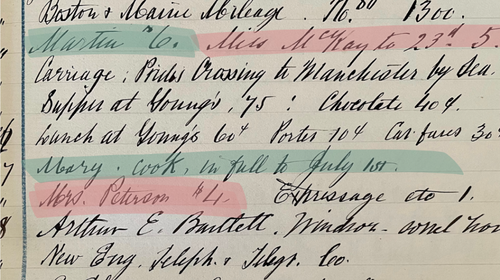 Boston & Maine Mileage. No. 80 1300.
Martin $6. Miss McKay to 23d 5.
Carriage: Prides Crossing to Manchester by Sea.
Supper at Young's, 75: Chocolate 40¢.
Lunch at Young's 60¢ Porter 10¢ Car fares 30
7 Mary. cook, in full to July 1st.
Mrs. Peterson $4. Expressage etc 1.
8 Arthur E. Bartlett, Windsor
New Eng. Teleph. & Telegr. Co.